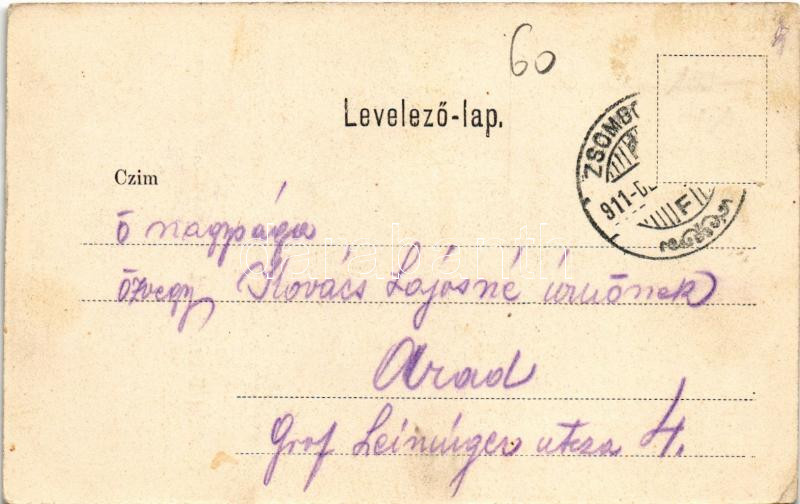 60
Levelező-lap.
ZSOMBO
911
F
Czim
Ő nagysága
özvegy Kovács Lajosné úrnőnek
Arad
Gróf Leininger utcza 4.
darabanth